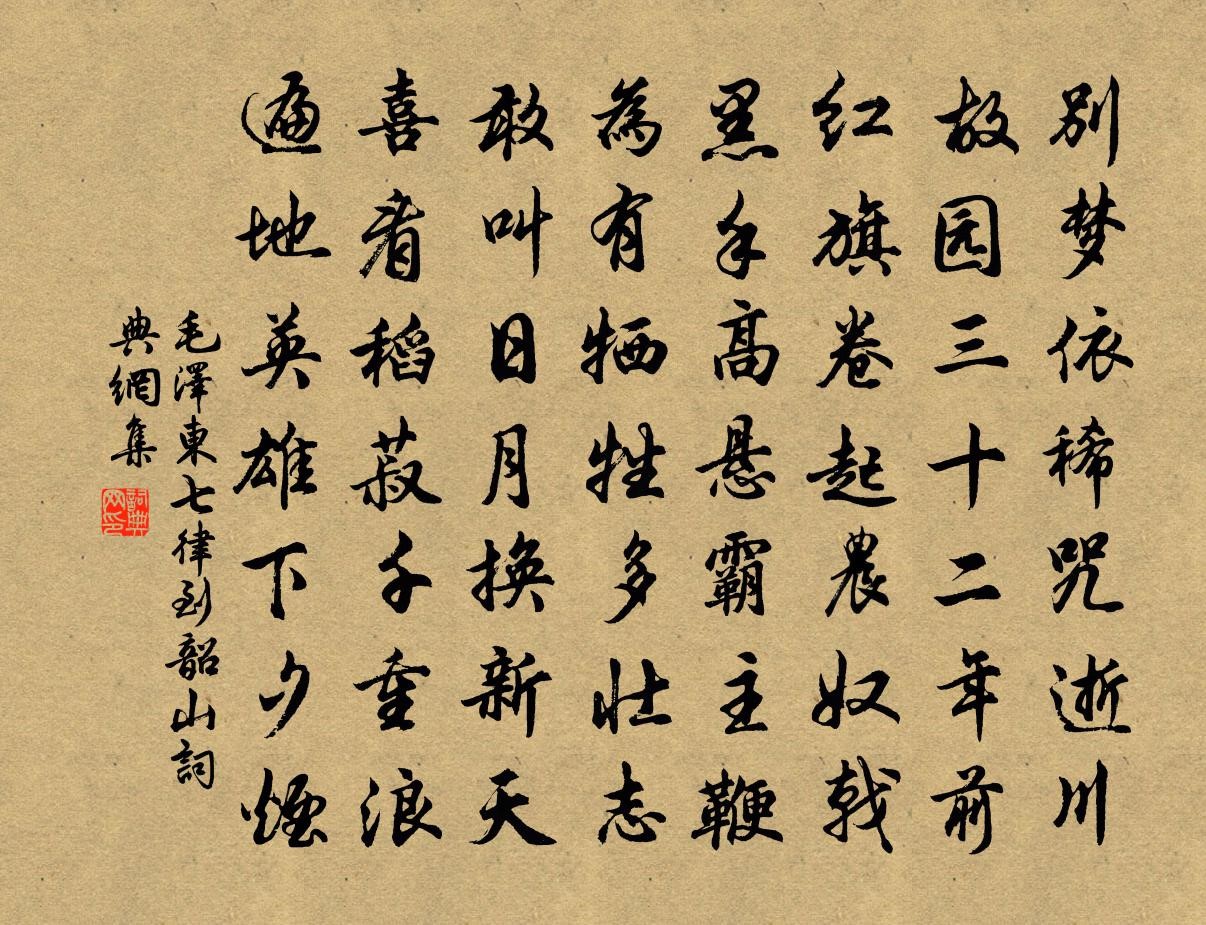 别梦依稀咒逝川
故园三十二年前
红旗卷起農奴戟
黑手高悬霸主鞭
為有牺牲多壮志
敢叫日月换新天
喜看稻菽千重浪
遍地英雄下夕煙
毛澤東七律到韶山詞
典網集
詞典
网印